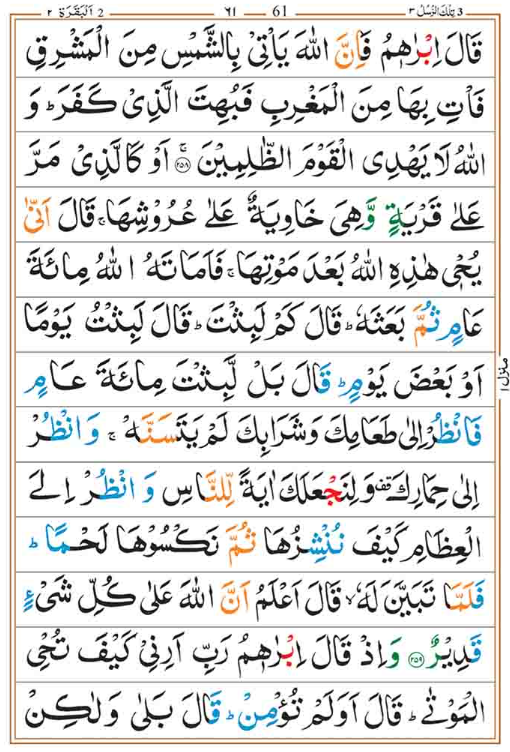 3 تِلْكَ الرُّسُلُ ٣ 61 ٦١ 2 اَلْبَقَرَة ٢
قَالَ اِبْرٰهٖمُ فَاِنَّ اللّٰهَ يَاْتِيْ بِالشَّمْسِ مِنَ الْمَشْرِقِ
فَاْتِ بِهَا مِنَ الْمَغْرِبِ فَبُهِتَ الَّذِيْ كَفَرَ ؕ وَ
اللّٰهُ لَا يَهْدِي الْقَوْمَ الظّٰلِمِيْنَ ۚ‏﴿۲۵۸﴾ اَوْ كَالَّذِيْ مَرَّ
عَلٰى قَرْيَةٍ وَّهِيَ خَاوِيَةٌ عَلٰى عُرُوْشِهَا ۚ قَالَ اَنّٰى
يُحْيٖ هٰذِهِ اللّٰهُ بَعْدَ مَوْتِهَا ۚ فَاَمَاتَهُ اللّٰهُ مِائَةَ
عَامٍ ثُمَّ بَعَثَهٗ ؕ قَالَ كَمْ لَبِثْتَ ؕ قَالَ لَبِثْتُ يَوْمًا
اَوْ بَعْضَ يَوْمٍ ؕ قَالَ بَلْ لَّبِثْتَ مِائَةَ عَامٍ
فَانْظُرْ اِلٰى طَعَامِكَ وَشَرَابِكَ لَمْ يَتَسَنَّهْ ۚ وَانْظُرْ
اِلٰى حِمَارِكَ ۗ وَلِنَجْعَلَكَ اٰيَةً لِّلنَّاسِ وَانْظُرْ اِلَى
الْعِظَامِ كَيْفَ نُنْشِزُهَا ثُمَّ نَكْسُوْهَا لَحْمًا ؕ
فَلَمَّا تَبَيَّنَ لَهٗ ۙ قَالَ اَعْلَمُ اَنَّ اللّٰهَ عَلٰى كُلِّ شَيْءٍ
قَدِيْرٌ ‏﴿۲۵۹﴾ وَاِذْ قَالَ اِبْرٰهٖمُ رَبِّ اَرِنِيْ كَيْفَ تُحْيِ
الْمَوْتٰى ؕ قَالَ اَوَلَمْ تُؤْمِنْ ؕ قَالَ بَلٰى وَلٰكِنْ
منزل ١